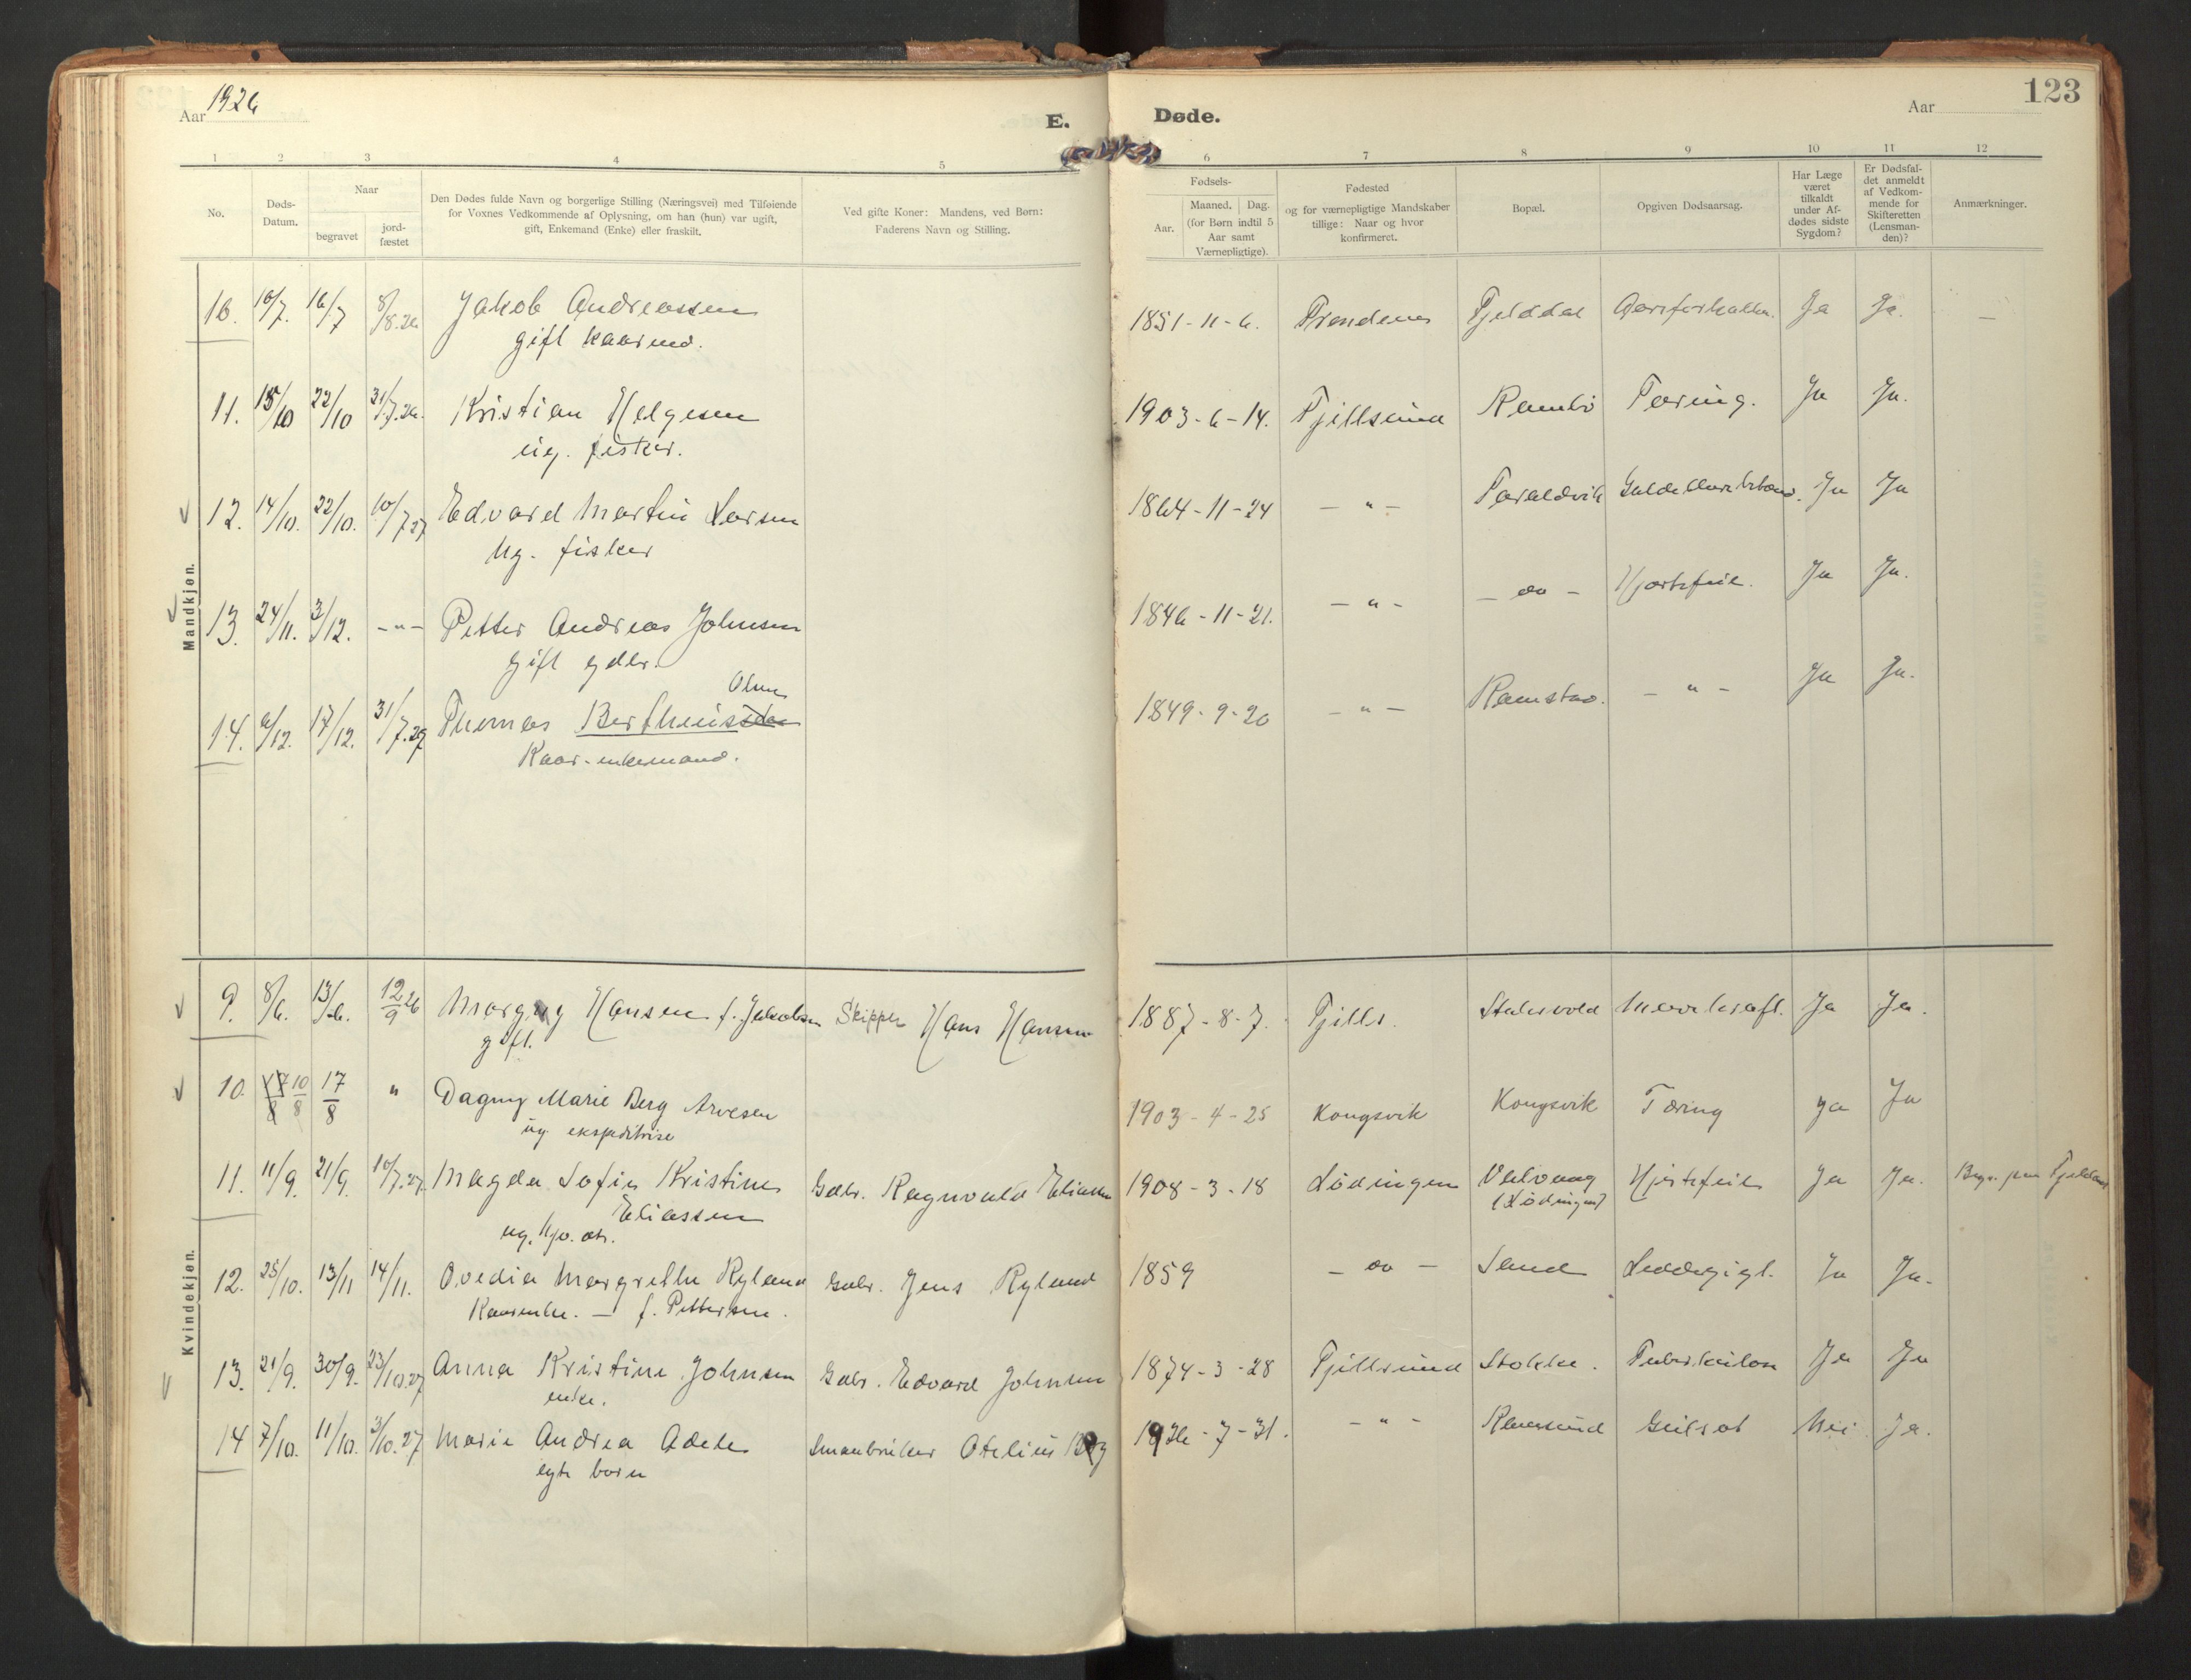 Aar 1926
E.
Døde.
Aar
123
1 2 3 4 5 6 7 8 9 10 11 12
No.
Døds-
Datum.
Naar
begravet
jord-
fæstet
Den Dødes fulde Navn og borgerlige Stilling (Næringsvei) med Tilføiende
for Voxnes Vedkommende af Oplysning, om han (hun) var ugift,
gift, Enkemand (Enke) eller fraskilt.
Ved gifte Koner: Mandens, ved Børn:
Faderens Navn og Stilling.
Fødsels-
Aar.
Maaned. Dag.
(for Børn indtil 5
Aar samt
Værnepligtige).
Fødested
og for værnepligtige Mandskaber
tillige: Naar og hvor
konfirmeret.
Bopæl.
Opgiven Dødsaarsag.
Har Læge
været
tilkaldt
under Af-
dødes sidste
Sygdom?
Er Dødsfal-
det anmeldt
af Vedkom-
mende for
Skifteretten
(Lensman-
den)?
Anmærkninger.
Mandkjøn.
10. 10/7. 16/7 8/8.26 Jakob Andreassen 1851-11-6. Trondenes Fjelddal Aareforkalkn. Ja Ja. —
gift kaarmd.
11. 15/10 22/10 31/7.26. Kristian Helgesen 1903-6-14. Fjellsund Rambø Tæring. Ja Ja.
ug. fisker.
12. 14/10. 22/10. 10/7.27 Edvard Martin Larsen 1864-11-24 - " - Taraldvik Ja Ja
Ug. fisker
13. 24/11. 3/12. - " - Petter Andreas Johnsen 1846-11-21. - " - - do - Hjertefeil. Ja Ja.
gift gdbr.
Olsen
14. 6/12. 17/12. 31/7.27 Thomas Berthinussen 1849-9-20 - " - Ramstad. - " - Ja Ja.
Kaar-enkemand.
Kvindekjøn.
9. 8/6. 13/6. 12/9 26 Margny Hansen f. Jakobsen Skipper Hans Hansen 1887-8-7. Fjells. Ja Ja.
gift.
10. 17/8 10/8 17/8 " Dagny Marie Berg Arvesen 1903-4-25 Kongsvik Kongsvik Tæring ja Ja
ug ekspeditrise
11. 11/9. 21/9. 10/7.27. Magda Sofie Kristine Gdbr. Ragnvald Eliassen 1908-3-18 Lødingen Hjertefeil Ja Ja.
Eliassen (Lødingen)
ug. hjv. dtr.
12. 25/10. 13/11 14/11. Ovedia Margrethe Ryland Gdbr. Jens Ryland 1859 - do - Sand Leddegigt. Ja Ja.
Kaarenke. — f. Pettersen.
13. 21/9. 30/9. 23/10.27 Anna Kristine Johnsen Gdbr. Edvard Johnsen 1874-3-28 Fjellsund Stokke. Tuberkulose Ja Ja
enke.
14 7/10. 11/10. 3/10.27 Marie Andrea Adele Smaabruker Otelius Berg 1926-7-31. - " - Ramsund Gulsot Nei Ja.
egte barn